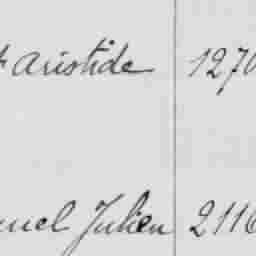 Aristide 1270
Julien 2116